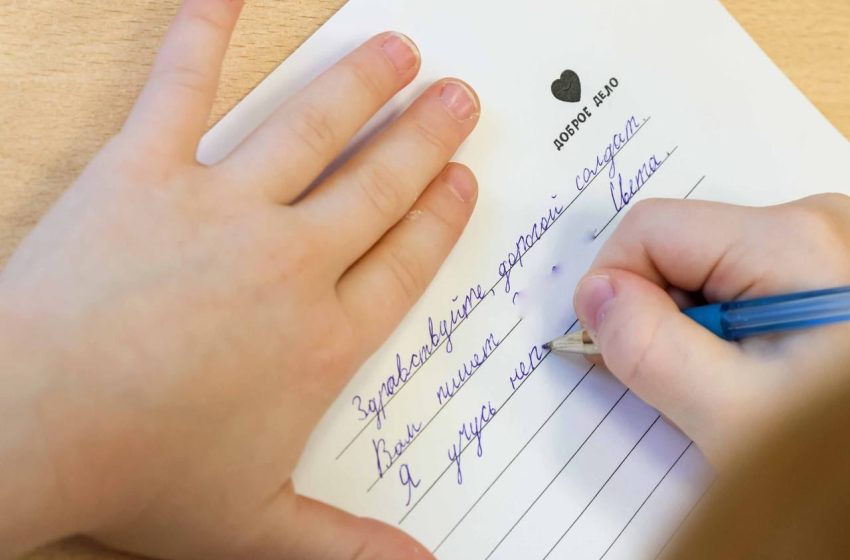 ДОБРОЕ ДЕЛО
Здравствуйте, дорогой солдат.
Вам пишет
Я учусь неп